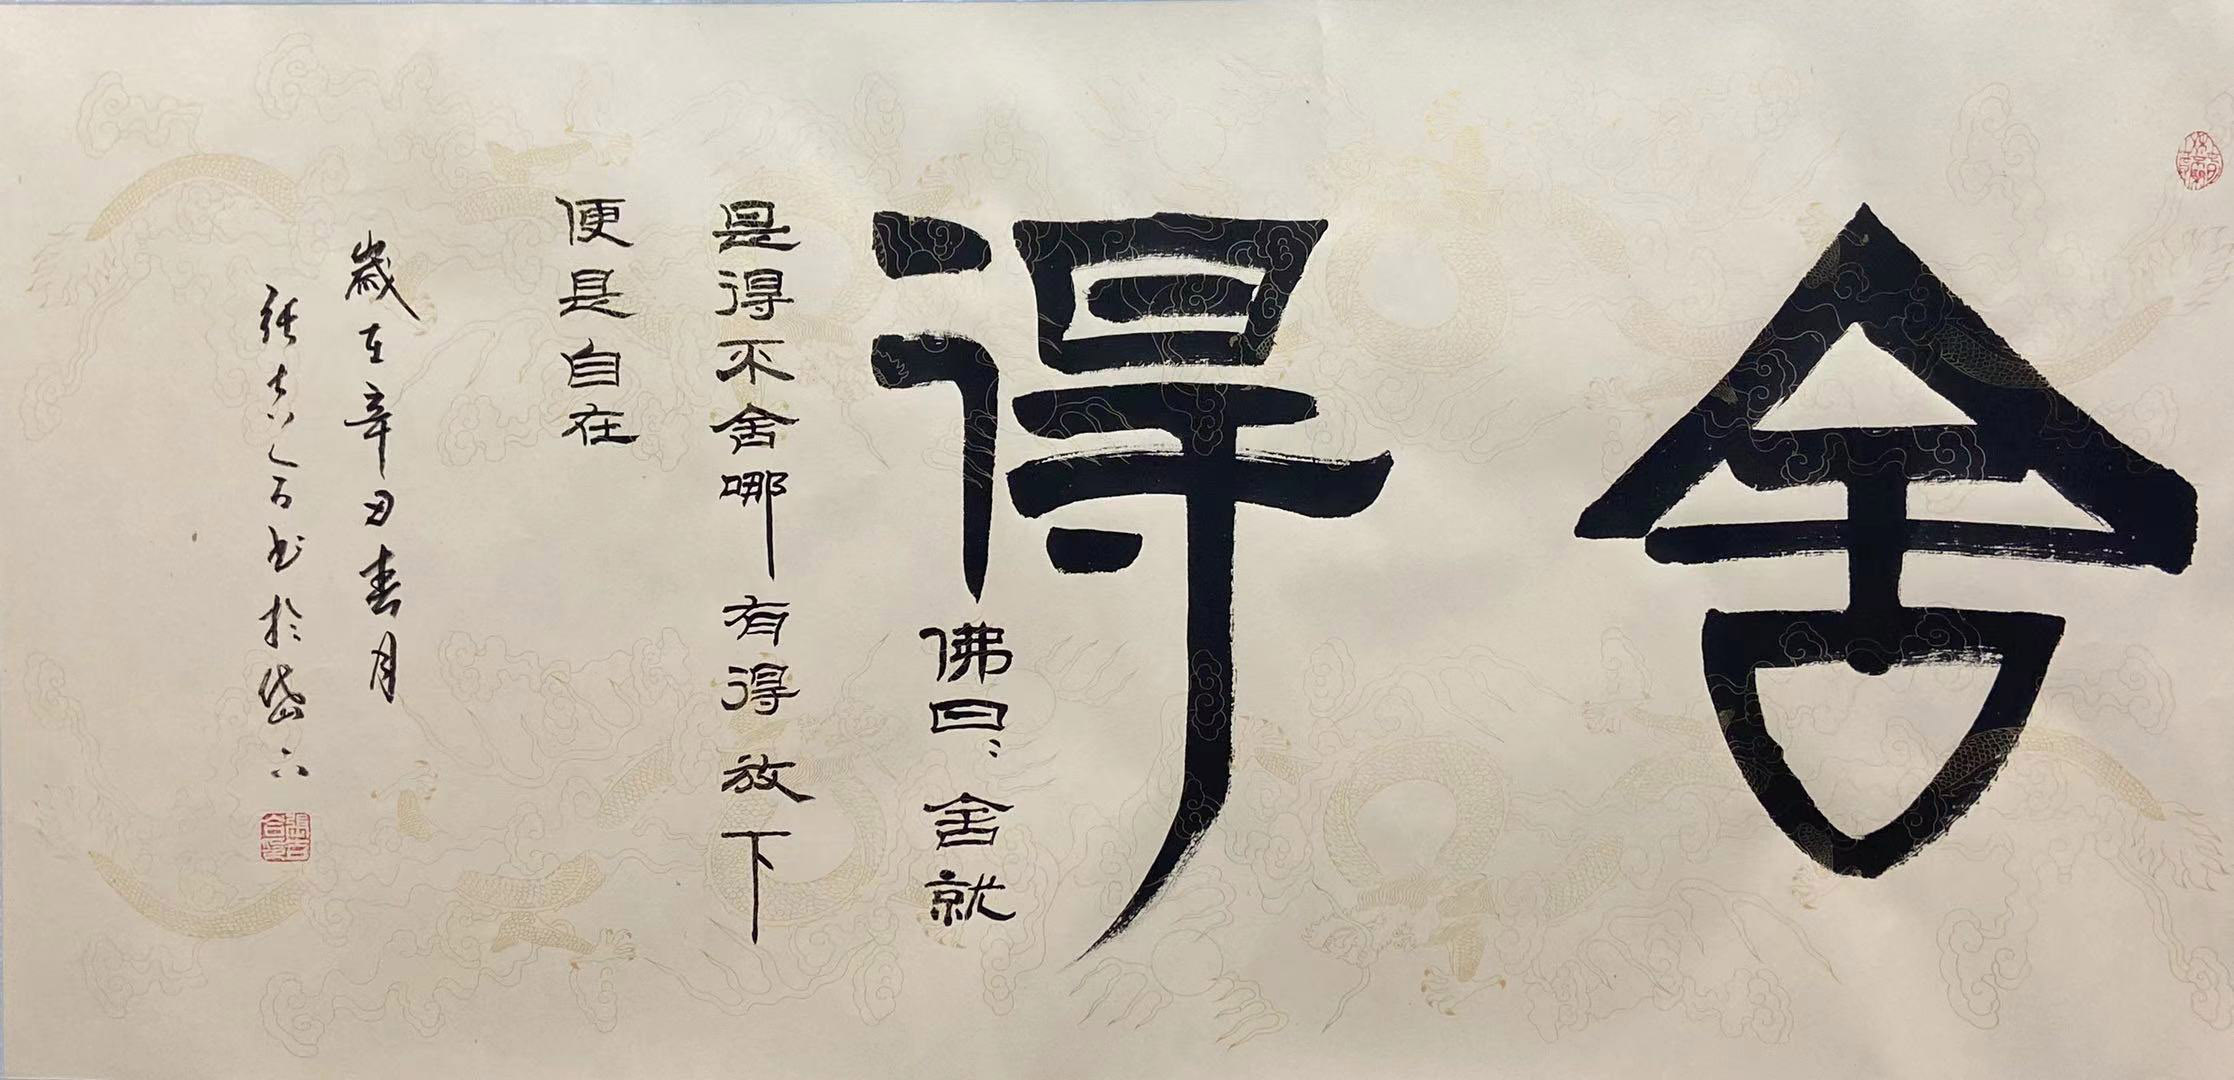 舍得
佛曰：舍就
是得不舍哪有得放下
便是自在
歲在辛丑春月
書於岱下